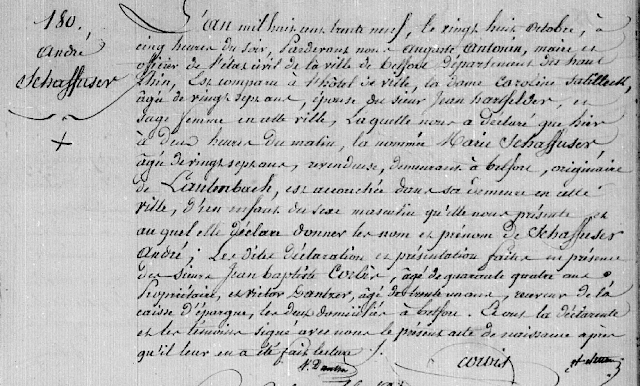 180.
André
Schaffuser
L'an mil huit cent trente neuf, le vingt huit octobre, à
cinq heures du soir, Pardevant nous Auguste Antonin, maire et
officier de l'état civil de la ville de Belfort département du haut
Rhin, Est comparu à l'hôtel de ville, la dame Caroline
âgée de vingt sept ans, épouse du sieur Jean hartfelder, et
sage femme en cette ville, Laquelle nous a déclaré que hier
à deux heures du matin, la nommée Marie Schaffuser,
âgée de vingt sept ans, revendeuse, demeurant à Belfort, originaire
de Lautenbach, est accouchée dans sa demeure en cette
ville, d'un enfant du sexe masculin qu'elle nous présente et
auquel elle déclare donner les nom et prénom de Schaffuser
André; Les dites déclaration et présentation faites en présence
des sieurs Jean baptiste âgé de quarante quatre ans
Propriétaire, et Victor Dantzer, âgé de trente un ans, receveur de la
caisse d'épargne, les deux domiciliés à Belfort. Et ont la déclarante
et les témoins signé avec nous le présent acte de naissance après
qu'il leur en a été fait lecture.
V. Dantzer